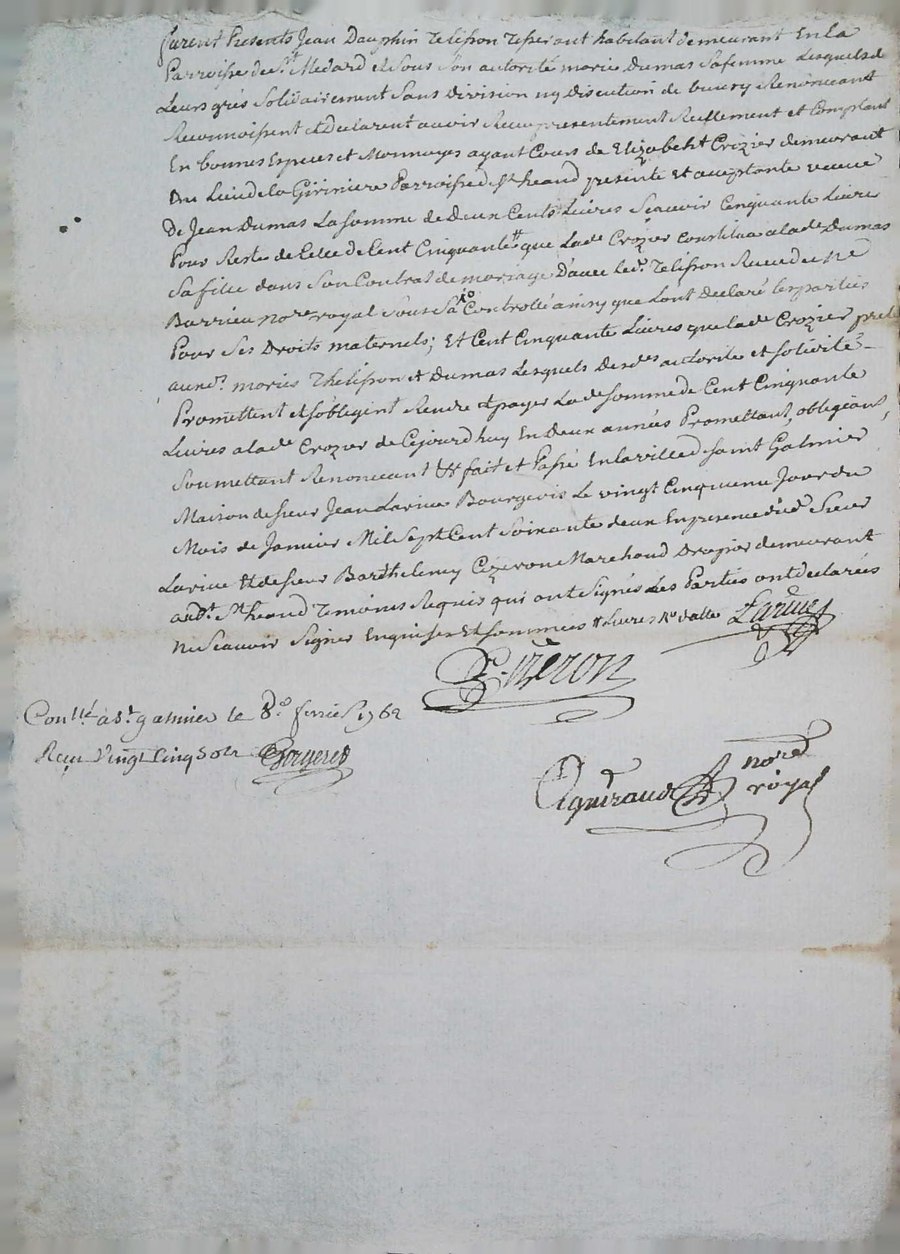 furent Presents Jean Dauphin Telisson Tisserant habitant demeurant En la
Parroisse de St Medard et Sous Son autorité marie Dumas Sa femme Lesquels de
Leurs grés Solidairement Sans Division ny discution de Renonceant
Reconnoissent et declarent avoir Receu presentement Reellement et Comptant
En bonnes Especes et Monnoyes ayant Cours de Elizabeht Crozier demeurant
Du Lieu de la Giriniere Parroisse de St heand presente et acceptante veuve
De Jean Dumas La Somme de Deux Cents Livres Scavoir Cinquante Livres
Pour Restes de Celle de Cent Cinquante tt que Lade Crozier Constitua alade Dumas
Sa fille dans Son Contrat de mariage D'avec led. Telisson Receu de Me
Barrieu nore royal Sous Sa Controllé ainsy que Lont declaré les parties
Pour Ses Droits maternels; Et Cent Cinquante Livres que lade Crozier prete
auxd. maries Thelisson et Dumas Lesquels de sdes autorité et Soliditté
Promettent et soblegint Rendre et payer Lade Somme de Cent Cinquante
Livres alade Crozier de Cejourdhuy En Deux années Promettant, oblegeant,
Soumettant Renonceant &t fait et Passé En la ville de Saint Galmier
Maison de Sieur Jean Larive Bourgeois Le vingt Cinquieme Jour du
Mois de Janvier Mil Sept Cent Soixante deux En presence dud. Sieur
Larive Et de Sieur Barthelemy Cizeron Marchand Drapier demeurant
aud. St heand Temoins Requis qui ont Signés Les Parties ont declarées
Ne Scavoir Signer Enquises Et Sommées
Larive
Cizeron
Conllé à St galmier le 8e fevrier 1762
Reçu Vingt Cinq Sols
nore
royal